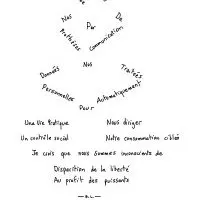 Nos De
Par
Prothèses Communication
Nos
Données Traitées
Personnelles Automatiquement
Pour
Une Vie Statique Nous diriger
Un contrôle social Notre consommation ciblée
Je crois que nous sommes inconscients de
Disparition de la liberté
Au profit des puissants